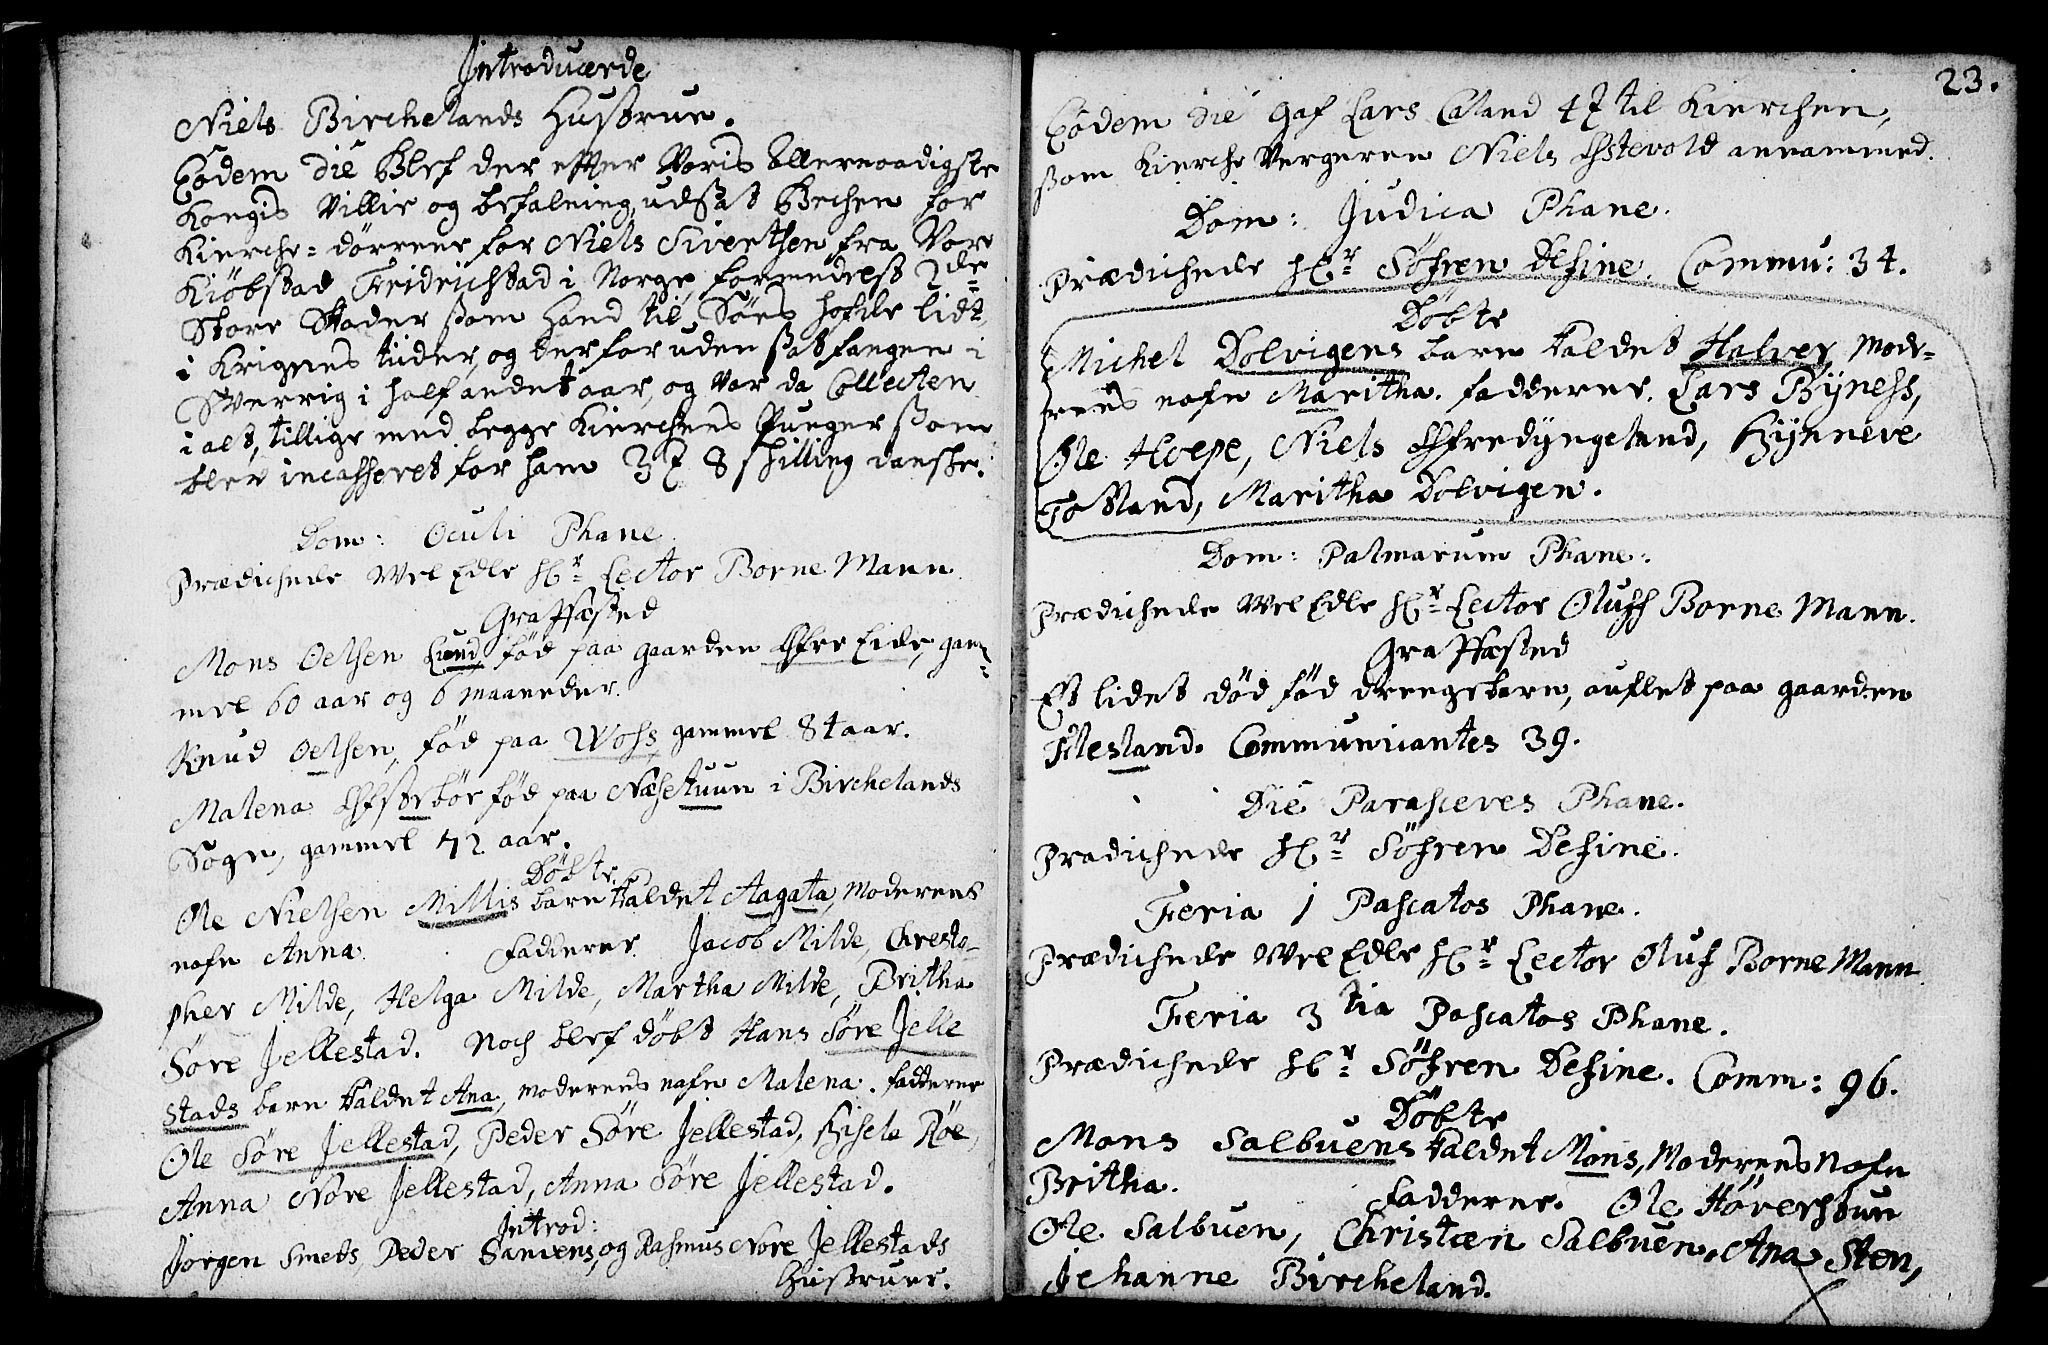 Introducerde
Niels Birchelands Hustrue.
Eodem die blef der effter Voris Allernaadigste
Kongis Villie og befalning, udsat Bechen for
Kirche-dörrene for Niels Sivertsen fra Vor
Kiöbstad Fridrichstad i Norge, formedelst 2de
Store Skader som hand til Söes hafde lidt,
i Krigens tiider, og derforuden sat fangen i
Sverrig i half andet aar, og var da Collecten
i alt, tillige med begge Kierchens Punger som
blev incasseret for ham 3 8 skilling danske.
Dom: Oculi Phane
Prædichede Wel Edle Hr Lector Borne Mann
Graffæsted
Mons Oelsen Lund, föd paa gaarden Öfre Eide, gam-
mel 60 aar og 6 maaneder.
Knud Oelsen, föd paa Woss, gammel 84 aar.
Malena föd paa Næsetuun i Birchelands
Sogn, gammel 72 aar.
Döbte
Ole Nielsen Millis barn kaldet Aagata, Moderens
nafn Anna. Fadderer. Jacob Milde, Christo-
pher Milde, Helga Milde, Martha Milde, Britha
Söre Jellestad. Noch blef döbt Hans Söre Jelle
stads barn kaldet Ana, moderens nafn Malena. fadderne
Ole Söre Jellestad, Peder Söre Jellestad, Gisela Röe,
Anna Nöre Jellestad, Anna Söre Jellestad.
Introd:
Jörgen Smeds, Peder Sandens, og Rasmus Nore Jellestads
Hustruer.
23.
Eodem die gaf Lars Caland 4 til Kierchen,
som Kierche Vergeren Niels Östevold annammed.
Dom: Judica Phane.
Prædichede Hr Söfren Define. Commu: 34.
Döbte
Michel Dolvigens barn kaldet Halver, Mode-
rens nafn Maritha. fadderer. Lars Bÿness,
Ole Hoepe, Niels Öfredÿngeland, Gÿnneve
Totland, Maritha Dolvigen.
Dom: Palmarum Phane.
Prædichede Wel Edle Hr Lector Oluff Borne Mann.
Graffæsted
Et lidet död föd drengebarn, auflet paa gaarden
Flesland. Communicantes 39.
Die Parasceves Phane.
Prædichede Hr Söfren Define.
Feria 1 Pascatos Phane.
Prædichede Wel Edle Hr Lector Oluf Borne Mann
Feria 3tia Pascatos Phane.
Prædichede Hr Söfren Define. Comm: 96.
Döbte
Mons Salbuens kaldet Mons, Moderens Nafn
Britha. Fadderer. Ole
Ole Salbuen, Christen Salbuen, Ana Sten,
Jehanne Bircheland.